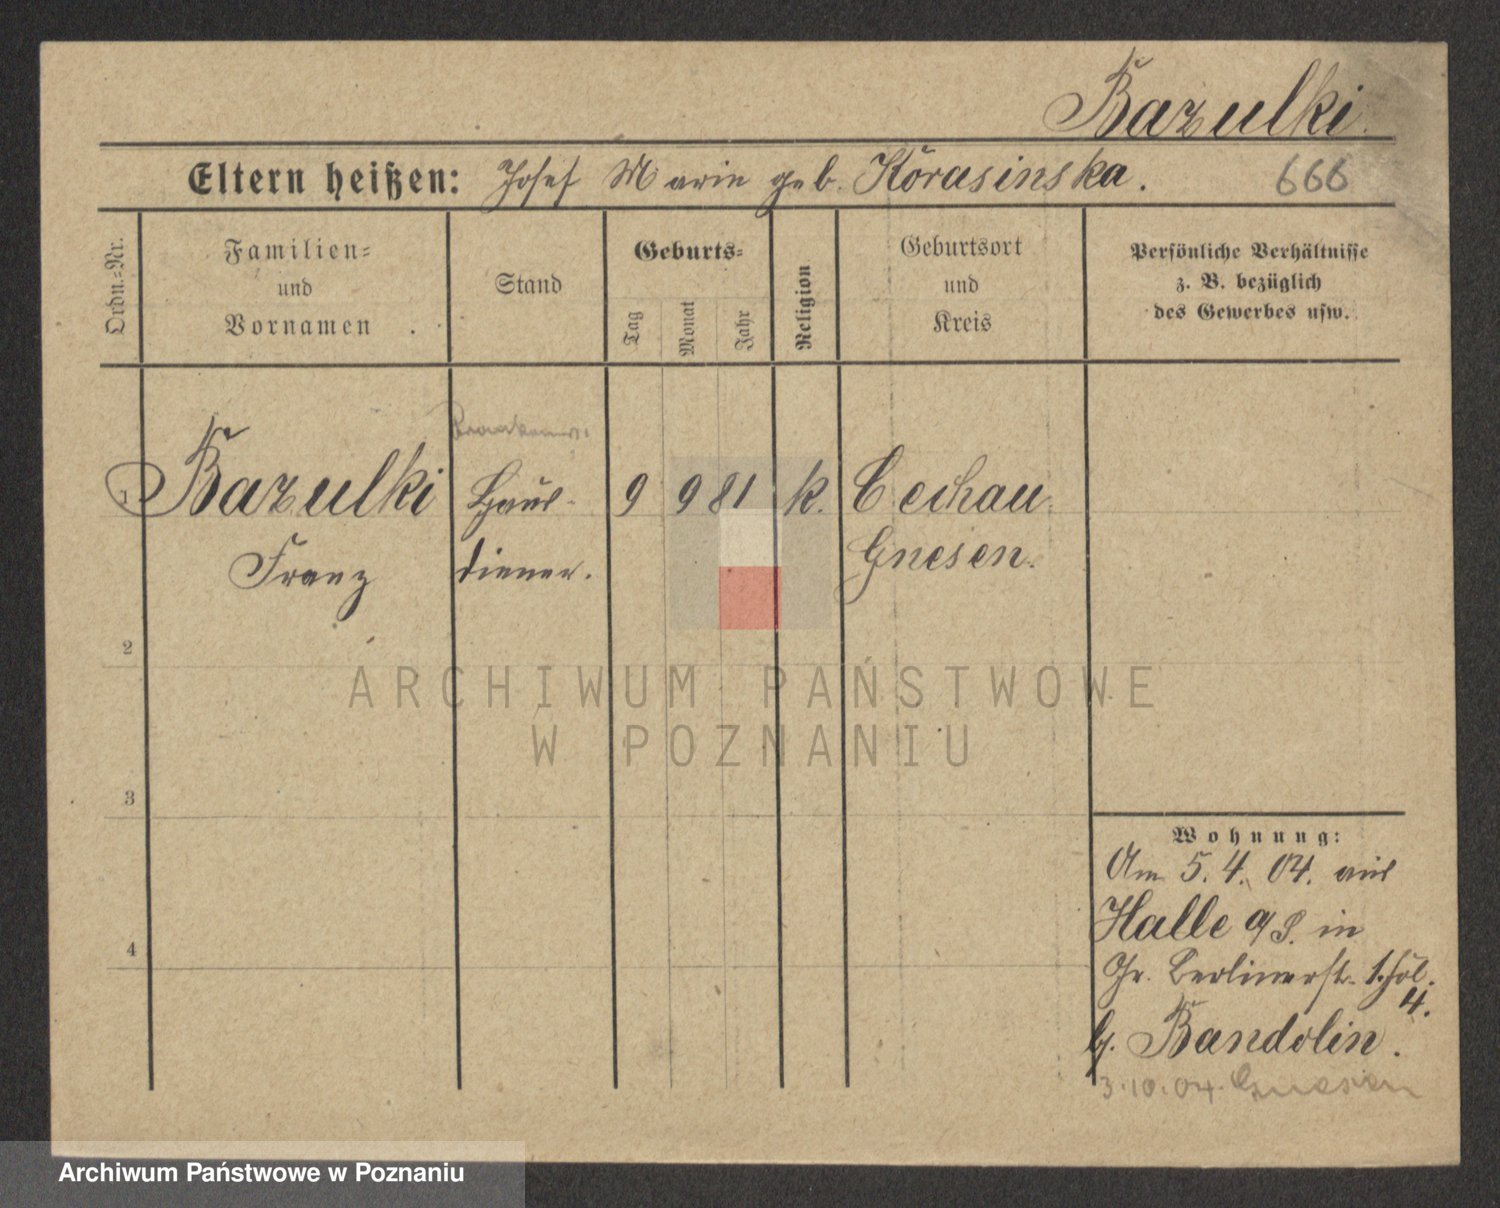 Bazulki.
Eltern heißen: Josef Marie geb. Korasinska.
666
Ordn.-Nr.
Familien-
und
Vornamen
Stand
Geburts-
Tag
Monat
Jahr
Religion
Geburtsort
und
Kreis
Persönliche Verhältnisse
z. B. bezüglich
des Gewerbes usw.
1 Bazulki Haus- 9 9 81 k. Cechau
Franz diener. Gnesen.
2
3
4
ARCHIWUM PAŃSTWOWE
W POZNANIU
Wohnung:
Am 5. 4. 04. aus
Halle a/S. in
Gr. Berlinerstr.
4.
b. Bandolin.
3.10.04. Gnesen
Archiwum Państwowe w Poznaniu